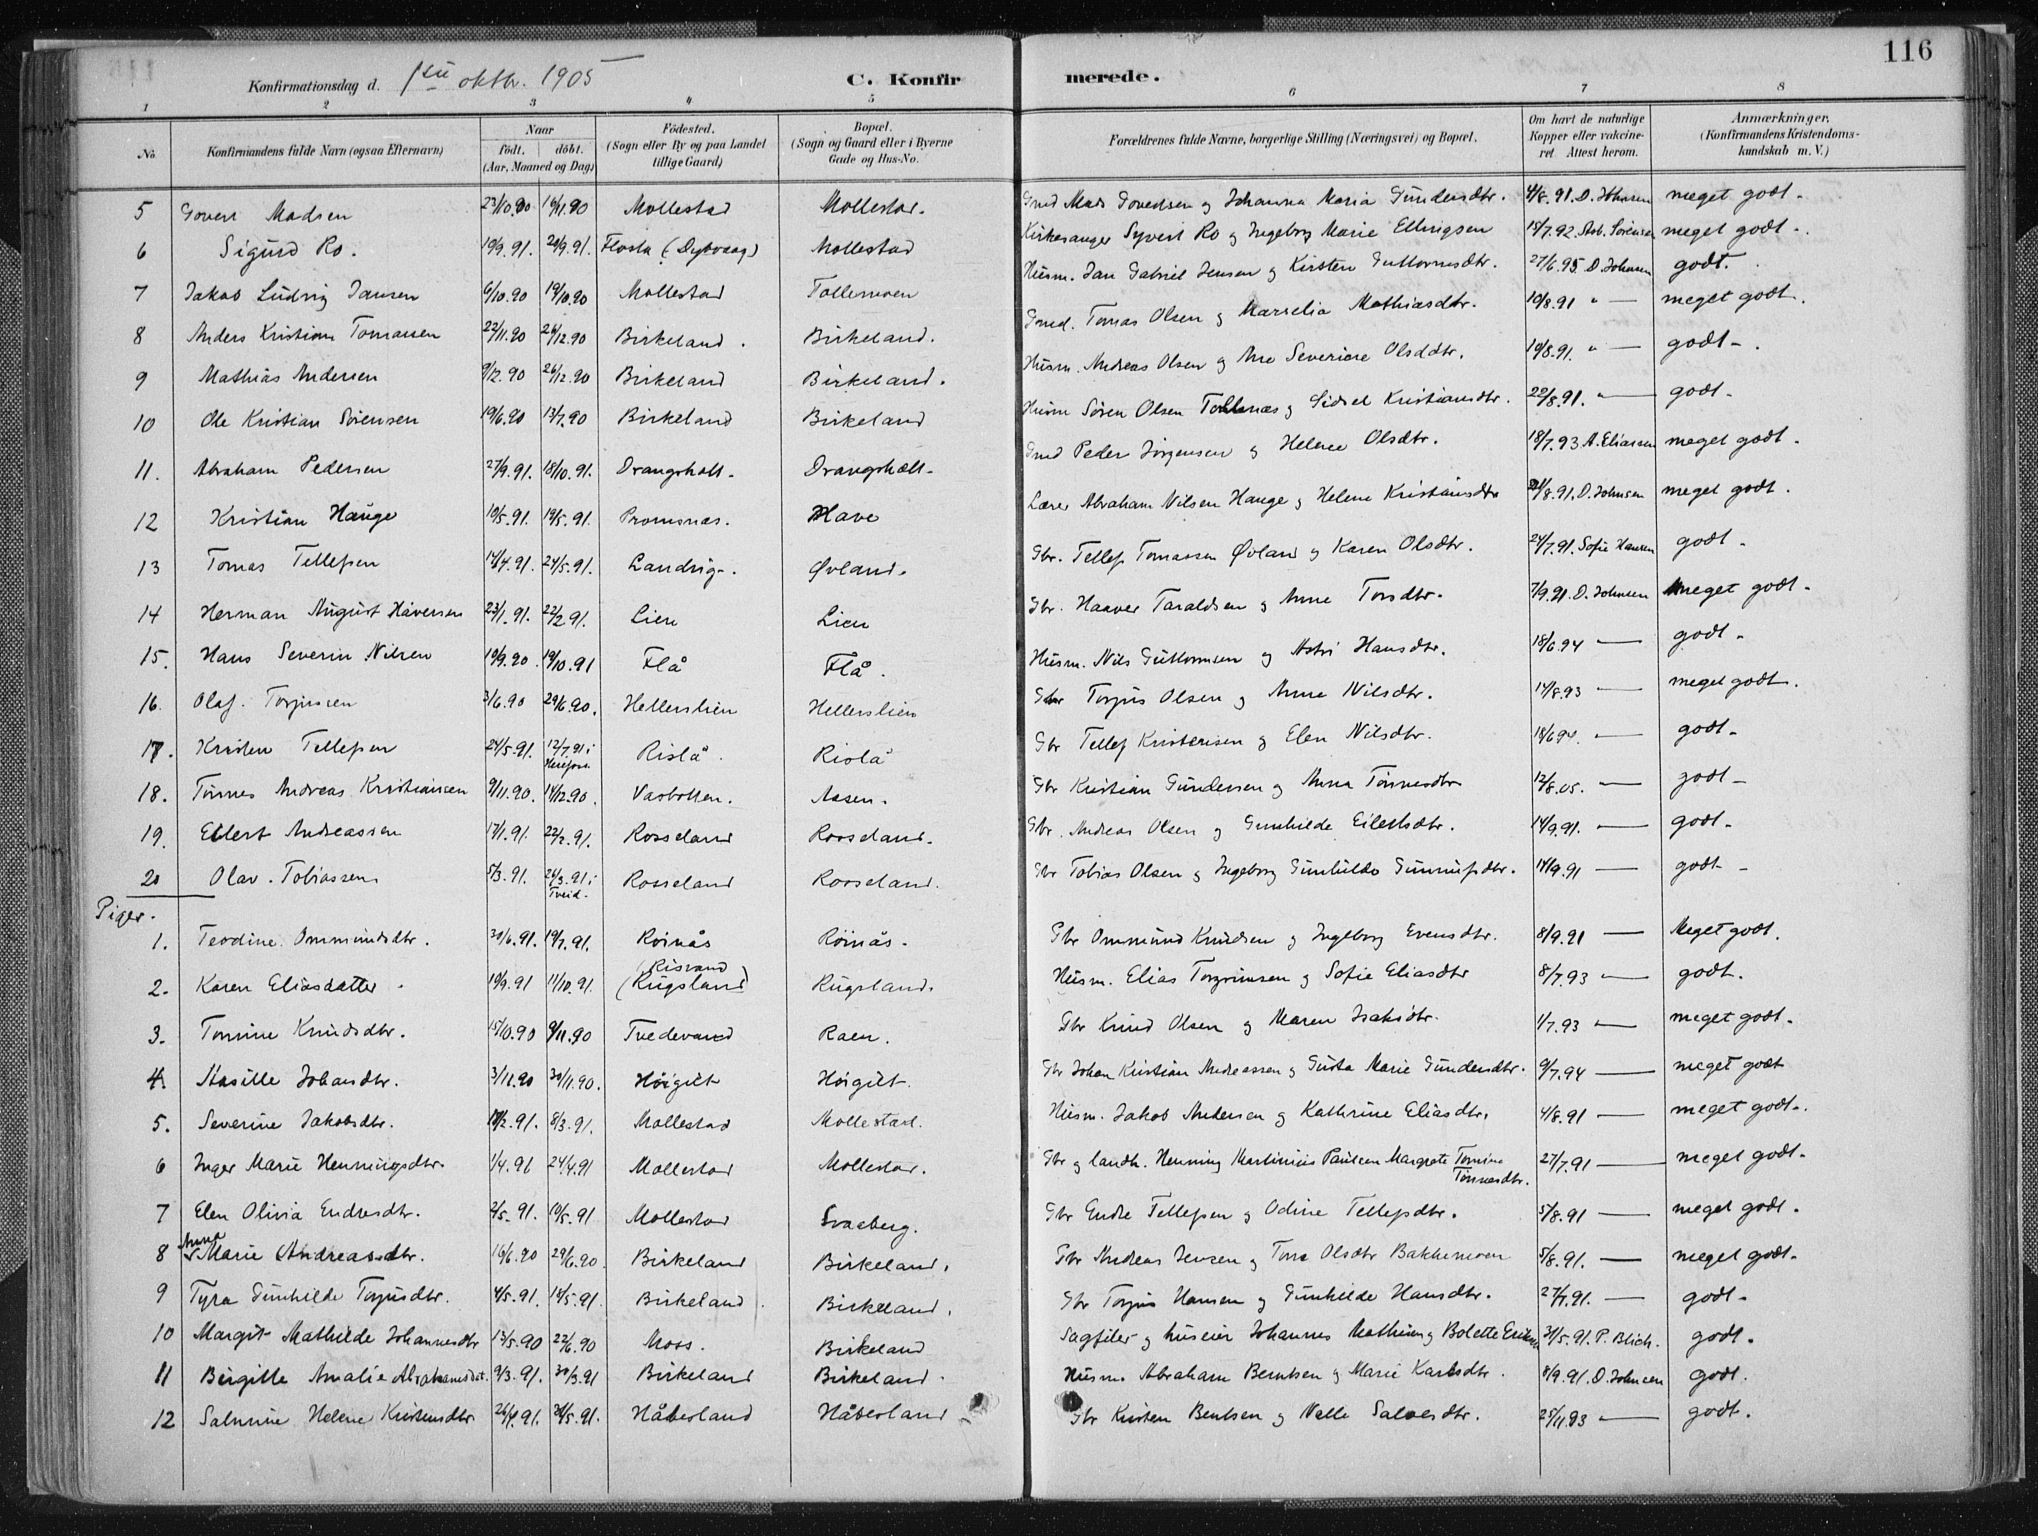 116
Konfirmationsdag d. 1ste oktbr. 1905 C. Konfirmerede.
1 2 3 4 5 6 7 8
No Konfirmandens fulde Navn (ogsaa Efternavn) Naar födt. döbt. (Aar, Maaned og Dag) Födested. (Sogn eller By og paa Landet tillige Gaard) Bopæl. (Sogn og Gaard eller i Byerne Gade og Hus-No. Forældrenes fulde Navne, borgerlige Stilling (Næringsvei) og Bopæl. Om havt de naturlige Kopper eller vakcineret. Attest herom. Anmærkninger. (Konfirmandens Kristendomskundskab m. V.)
5 Govert Madsen 23/10.90 16/11.90 Mollestad Mollestad. Gmd Mads Govertsen og Johanna Maria Gundersdtr. 4/8.91. D. Johnsen meget godt.
6 Sigurd Ro. 19/9.91. 29/9.91. Flosta (Dybvaag) Mollestad Kirkesanger Syvert Ro og Ingeborg Marie Ellingsen 18/7.92. Sörensen meget godt.
7 Jakob Ludvig Jansen 6/10.90 19/10.90 Mollestad Tollemoen Husm. Jan Gabriel Jensen og Kirsten Guttormsdtr. 27/6.95. D. Johnsen godt.
8 Anders Kristian Tomassen 22/11.90 26/12.90 Birkeland. Birkeland. Gmd. Tomas Olsen og Marselia Mathiasdtr. 10/8.91 " — meget godt.
9 Mathias Andersen 9/12.90 26/12.90 Birkeland Birkeland. Husm. Andreas Olsen og Ane Severine Olsdtr. 10/8.91. " — godt.
10 Ole Kristian Sörensen 19/6.90 13/7.90 Birkeland Birkeland Husm Sören Olsen Tollnæs og Sidsel Kristiansdtr. 22/8.91. " — godt.
11. Abraham Pedersen 27/9.91. 18/10.91. Drangsholt. Drangsholt. Gmd Peder Jörgensen og Helene Olsdtr. 18/7.93 A. Eliassen meget godt.
12 Kristian Hauge 10/5.91. 19/5.91. Promsnæs. Have Lærer Abraham Nilsen Hauge og Helene Kristiansdtr 21/8.91. D. Johnsen meget godt.
13 Tomas Tellefsen 14/4.91. 24/5.91. Landvig. Övland. Gbr. Tellef Tomassen Övland og Karen Olsdtr. 24/7.91. Sofie Hansen godt.
14 Herman August Haversen 23/1.91. 22/2.91. Lien Lien Gbr. Haaver Taraldsen og Anne Torsdtr. 7/9.91. D. Johnsen meget godt.
15. Hans Severin Nilsen 10/9.90 19/10.91 Flå Flå. Husm. Nils Guttormsen og Astri Hansdtr. 18/6.94 — godt.
16. Olaf. Torjussen 3/6.90 29/6.90. Hellerslien Hellerslien Gbr Torjus Olsen og Anne Nilsdtr. 14/8.93 — meget godt.
17. Kristen Tellefsen 24/5.91. 12/7.91 i Herefoss. Rislå. Rislå Gbr Tellef Kristensen og Elen Nilsdtr. 18/6.94. — godt.
18. Tönnes Andreas Kristiansen 9/11.90. 14/12.90. Vasbotten. Aasen. Gbr Kristian Gundersen og Anna Tönnesdtr 12/8.05. — godt
19. Ellert Andreassen 17/1.91. 22/2.91. Rosseland Rosseland. Gbr. Andreas Olsen og Gunhilde Eilertsdtr. 14/9.91. — godt.
20 Olav. Tobiassen 5/3.91. 26/3.91 i Tveid. Rosseland Rosseland. Gbr Tobias Olsen og Ingeborg Gunhilde Gunnufsdtr. 14/9.91 — godt
Piger.
1. Teodine Ommundsdtr. 30/6.91. 19/7.91. Röinås Röinås. Gbr Ommund Knudsen og Ingeborg Evensdtr. 8/9.91 — Meget godt.
2. Karen Eliasdatter 19/9.91 11/10.91. (Risvand (Rugsland) Rugsland. Husm. Elias Torgrimsen og Sofie Eliasdtr 8/7.93 — godt.
3. Tomine Knudsdtr. 15/10.90 9/11.90 Tvedevand Raen. Gbr Knud Olsen og Maren Isaksdtr. 1/7.93 — meget godt.
4. Aasille Johansdtr. 3/11.90 30/11.90. Höigilt Höigilt. Gbr Johan Kristian Andreassen og Gusta Marie Gundersdtr. 9/7.94 — meget godt
5. Severine Jakobsdtr. 18/2.91. 8/3.91. Mollestad Mollestad. Husm. Jakob Andersen og Kathrine Eliasdtr. 4/8.91 — meget godt.
6 Inger Marie Henningsdtr. 1/4.91 24/4.91 Mollestad Mollestad. Gbr og landh. Henning Martinius Paulsen Margrete Tomine Tönnesdtr. 27/7.91 — meget godt.
7 Elen Olivia Endresdtr. 2/5.91. 10/5.91 Mollestad Svaberg. Gbr Endre Tellefsen og Odine Tellefsdtr. 5/8.91 — meget godt.
8 Anna Marie Andreasdtr. 16/6.90 29/6.90. Birkeland Birkeland. Gbr Andreas Jensen og Tone Olsdtr Bakkemoen 5/8.91. — meget godt.
9 Tyra Gunhilde Torjusdtr. 4/5.91. 14/5.91. Birkeland. Birkeland. Gbr Torjus Hansen og Gunhilde Hansdtr. 27/7.91. — godt.
10 Margit Mathilde Johannesdtr 13/5.90 22/6.90 Moss. Birkeland Sagfiler og huseier Johannes Mathisen og Bolette 31/5.91. P. Blich. godt.
11 Birgitte Amalie Abrahamsdat. 9/3.91. 30/3.91 Birkeland Birkeland. Husm. Abraham Berntsen og Marie Karlsdtr. 8/9.91. D. Johnsen godt.
12 Salmine Helene Kristensdtr. 26/4.91. 24/5.91. Håbesland Håbesland Gbr Kristen Bentsen og Nelle Salvesdtr. 25/11.93 — godt.